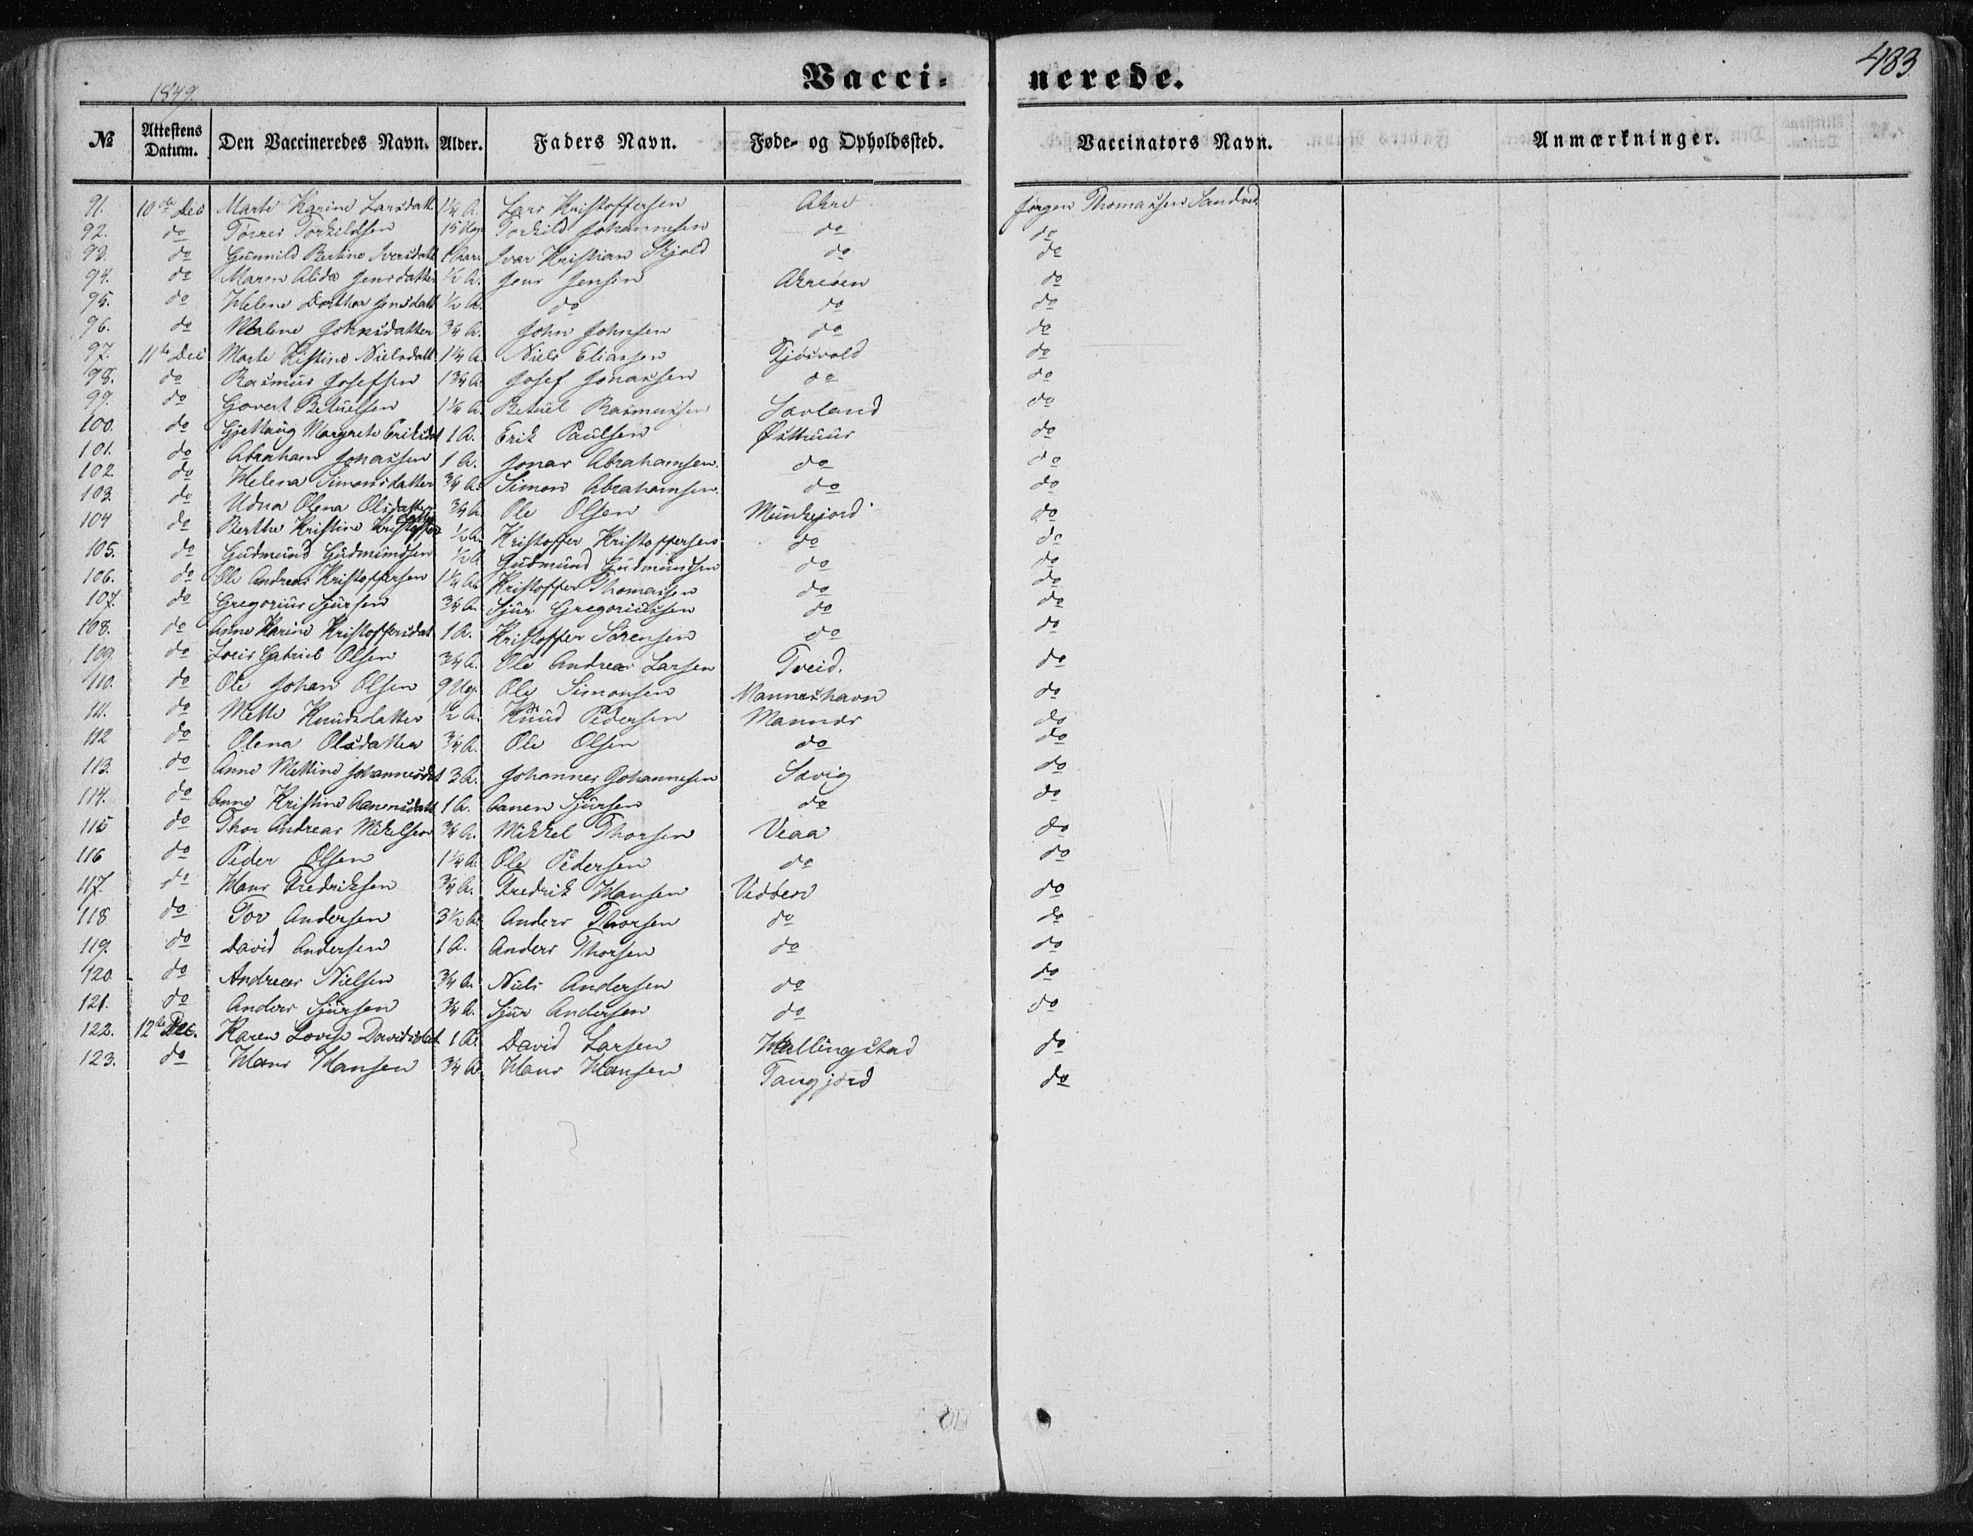 483
1849.
Vacci- nerede.
№ Attestens Datum. Den Vaccineredes Navn. Alder. Faders Navn. Føde- og Opholdssted. Vaccinators Navn. Anmærkninger.
91. 10de Dec Marte Karine Larsdatt 1¼ A. Lars Kristoffersen Akre Jørgen Thomassen Sandved
92. do Tørres Torkildsen 15 Ug. Torkild Johannesen do do
93. do Gunnild Bertine Iversdatt 1 Aar. Ivar Kristian Skjold do do
94. do Maren Alida Jensdatter ½ A. Jens Jensen Akreøen do
95. do Helene Dorthea Jensdatt ½ A. do do do
96. do Malene Johnsdatter ¾ A. John Johnsen do do
97. 11te Dec Marte Kistine Nielsdatt 1¼ A. Niels Eliassen Tjøsvold do
98. do Rasmus Josefsen 1¾ A. Josef Jonassen do do
99. do Govert Betuelsen 1¼ A. Betuel Rasmussen Sævland do
100. do Gjettrug Margrete Eriksdat 1 A. Erik Paulsen Østhuus do
101. do Abraham Jonassen 1 A. Jonas Abrahamsen. do do
102 do Helena Simonsdatter ¾ A. Simon Abrahamsen. do do
103. do Udna Olena Olsdatter ¾ A. Ole Olsen Munkejord do
104 do Berthe Kristine Kristoffers datter ½ A. Kristoffer Kristoffersen do do
105. do Gudmund Gudmundsen ½ A Gudmund Gudmundsen do do
106. do Ole Andreas Kristoffersen 1¼ A. Kristoffer Thomassen do do
107. do Gregorius Sjursen ¾ A. Sjur Gregoriussen do do
108. do Anne Karine Kristoffersdat 1 A. Kristoffer Sørensen do do
109. do Loris Gabriel Olsen ¾ A. Ole Andreas Larsen Tveid. do
110. do Ole Johan Olsen 9 Ug. Ole Simonsen Manneshavn do
111. do Mette Knudsdatter ½ A. Knud Pedersen Mannes do
112 do Olena Olsdatter ¾ A. Ole Olsen do do
113. do Anne Mettine Johannesdat 3 A. Johannes Johannesen Sævig do
114. do Anne Kristine Aanensdatt 1 A. Aanen Sjursen do do
115 do Thor Andreas Mikelsen ¾ A. Mikkel Thorsen Veaa do
116 do Peder Olsen 1¼ A. Ole Pedersen do do
117. do Hans Fredriksen ¾ A. Fredrik Hansen Vedøen do
118 do Tov Andersen 3½ A. Anders Thorsen do do
119. do David Andersen 1 A. Anders Thorsen do do
120 do Andreas Nielsen ¾ A. Niels Andersen do do
121. do Anders Sjursen ¾ A. Sjur Andersen do do
122. 12te Dec. Karen Lovise Davidsdat 1 A. David Larsen Hallingstad do
123. do Hans Hansen ¾ A. Hans Hansen Tangjerd do